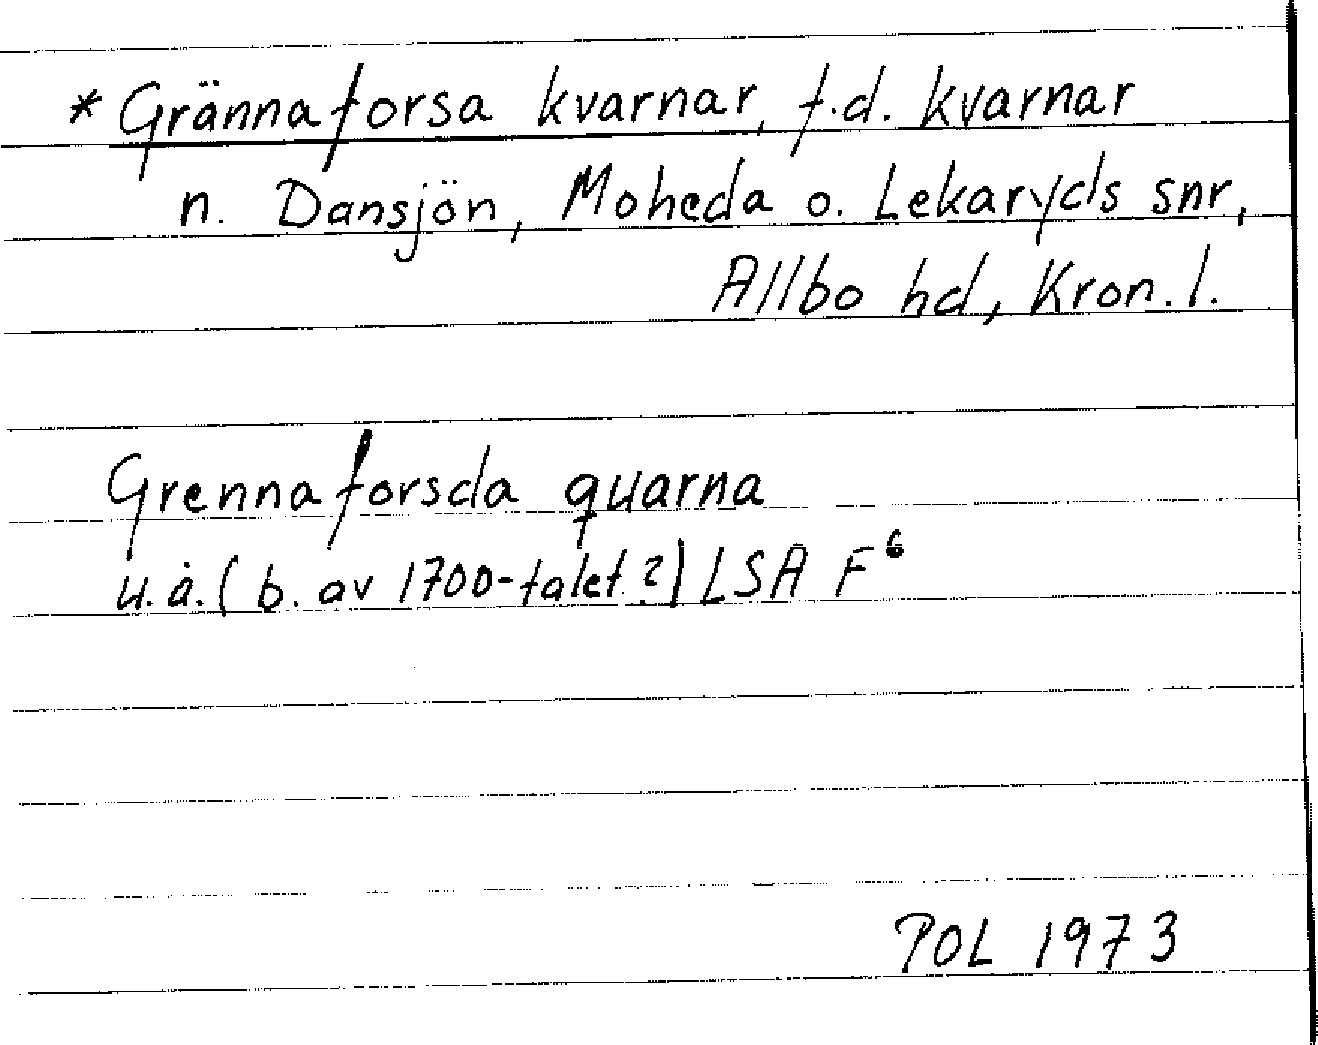 * Grännaforsa kvarnar, f.d. kvarnar
n. Dansjön, Moheda o. Lekaryds snr,
Allbo hd, Kron. l.
Grennaforsda quarna
u.å. (b. av 1700-talet?) LSA F⁶
POL 1973